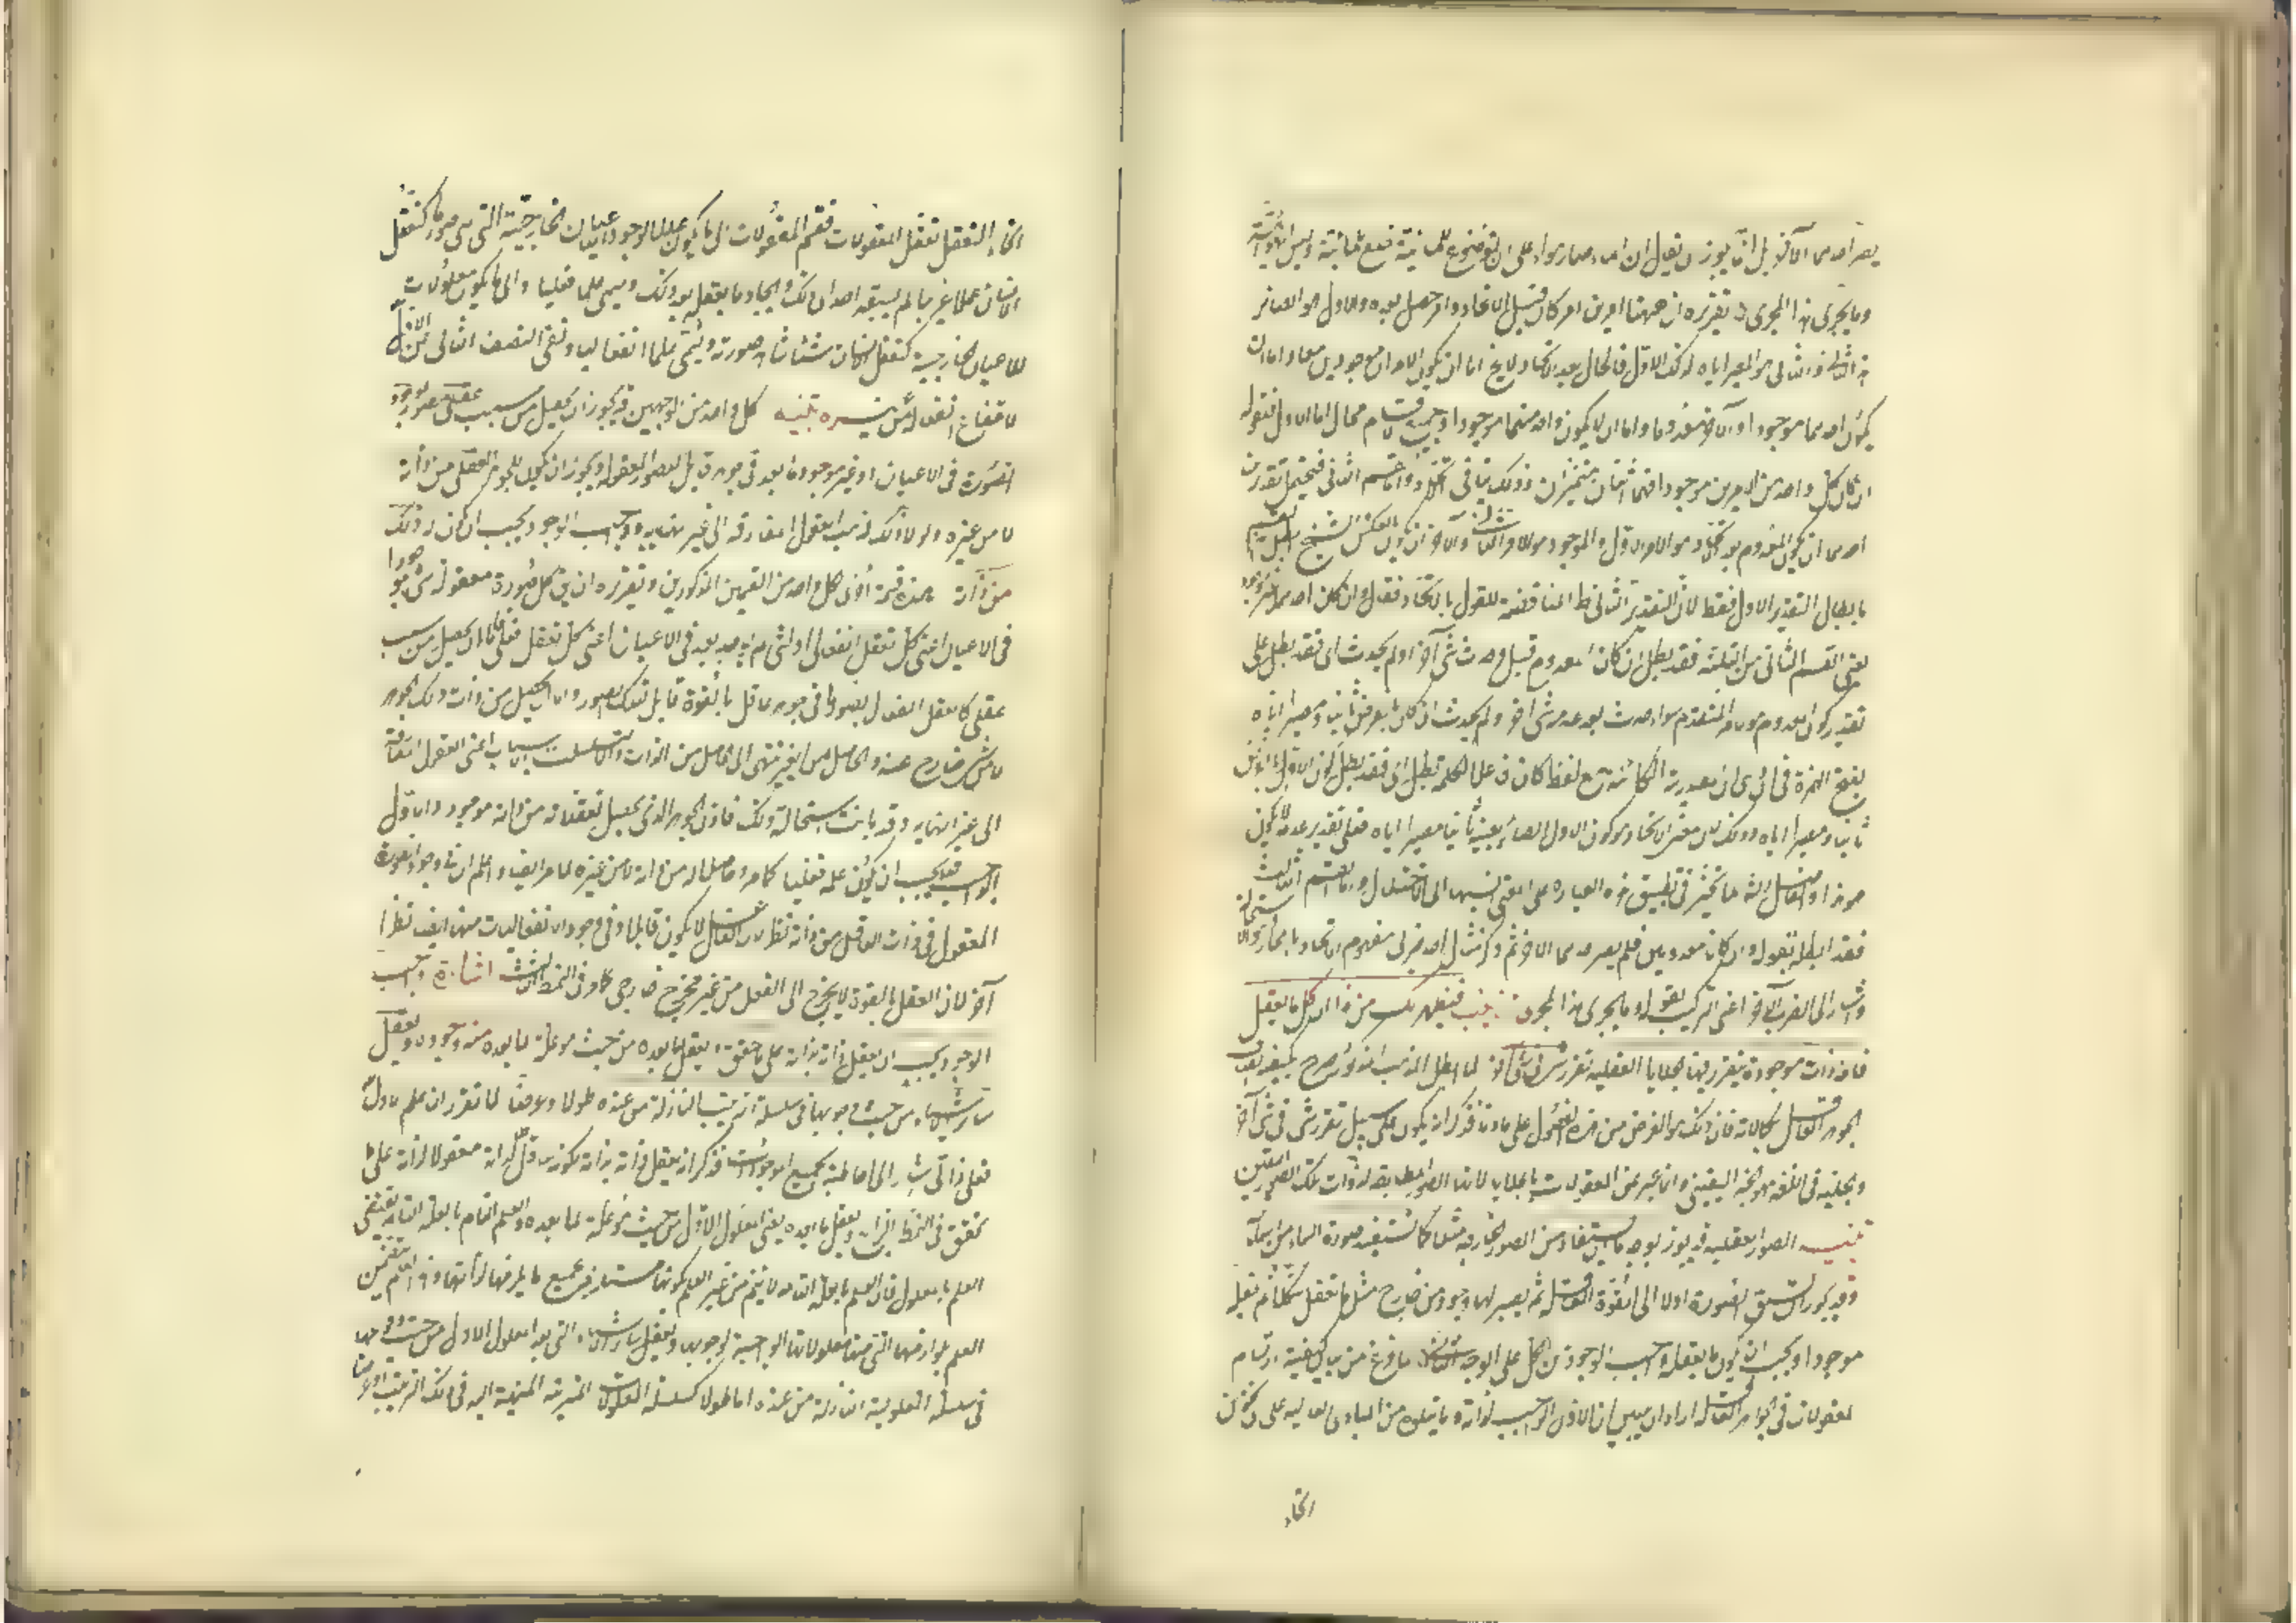 يصير احدهما الآخر بل انما يجوز ان يقال ان الماء صار هواء على ان الموضوع للمائية خلع المائية ولبس الهوائية
وما يجرى هذا المجرى تقريره ان ههنا امرين امر كان قبل الاتحاد وامر حصل بعده والاول هو الصائر
والثانى هو المصير اياه لذلك الاول فالحال بعد الاتحاد لا يخ اما ان يكون الامران موجودين معا واما ان
يكون احدهما موجودا والآخر معدوما واما ان لا يكون واحد منهما موجودا وجميع الاقسام محال اما الاول فلقوله
ان كان كل واحد من الامرين موجودا فهما اثنان متميزان وذلك ينافى الاتحاد واما القسم الثانى فيحتمل تقديرين
احدهما ان يكون المعدوم بعد الاتحاد هو الامر الاول والموجود هو الامر الثانى والآخر ان يكون بالعكس الشيخ ابطل القسم
بابطال التقدير الاول فقط لان التقدير الثانى ظ المناقضة للقول بالاتحاد فقال وان كان احدهما غير موجود
يعنى القسم الثانى من الثلثة فقد بطل ان كان المعدوم قبل وحدث شئ آخر او لم يحدث اى فقد بطل على
تقدير كون المعدوم هو الامر المتقدم سواء حدث بعد عدمه شئ آخر او لم يحدث ان كان بالفرض ثانيا ومصيرا اياه
بفتح الهمزة فى ان وهى ان المصدرية الكائنة مع لفظة كان فاعلا لكلمة بطل اى فقد بطل كون الاول بالفرض
ثانيا ومصيرا اياه وذلك لان معنى الاتحاد هو كون الاول الصائر بعينه ثانيا مصيرا اياه فعلى تقدير عدمه لا يكون
هو هذا والفاضل الشارح تحير فى تطبيق هذه العبارة على المعنى فنسبها الى الاختلال واما القسم الثالث
فقد ابطله بقوله وان كانا معدومين فلم يصر احدهما الآخر ثم ذكر مثال احد ضربى مفهوم الاتحاد بالمجاز وهو الاستحالة
واشار الى الضرب الآخر اعنى التركيب بقوله وما يجرى هذا المجرى تذنيب فيظهر لك من هذا ان كل ما يعقل
فانه ذات موجودة يتقرر فيها الجلايا العقلية تقرر شئ فى شئ آخر لما ابطل المذهب المذكور صرح بكيفية تعقل
الجوهر العاقل لكمالاته فان ذلك هو الغرض من هذه الفصول على ما مر فذكر انه يكون على سبيل تقرر شئ فى شئ آخر
والجلية فى اللغة هو الخبر اليقينى وانما عبر عن المعقولات بالجلايا لانها الصور المطابقة لذوات تلك الصور اليقين
تنبيه الصور العقلية قد يجوز بوجه ما ان تستفاد من الصور الخارجية مثلا كما تستفيد صورة السماء من السماء
وقد يجوز ان تسبق الصورة اولا الى القوة العاقلة ثم يصير لها وجود من خارج مثل ما تعقل شكلا ثم تجعله
موجودا ويجب ان يكون ما يعقله واجب الوجود من الكل على الوجه الثانى لما فرغ من بيان كيفية ارتسام
المعقولات فى الجواهر العاقلة اراد ان يبين ان الاول الواجب لذاته وما يتلوه من المبادى العالية على اى نحو من
انحاء
انحاء التعقل تعقل المعقولات فقسم المعقولات الى ما يكون عللا لوجود الاعيان الخارجية التى هى صورها كتعقل
الانسان عملا غريبا لم يسبقه احد الى ذلك وايجاده ما يعقل بعد ذلك ويسمى علما فعليا والى ما يكون معلولات
للاعيان الخارجية كتعقل الانسان شيئا شاهد صورته ويسمى علما انفعاليا ونفى الصنف الثانى عن الاول
لامتناع انفعاله عن غيره تنبيه كل واحد من الوجهين قد يجوز ان يحصل من سبب عقلى مصور لوجود
الصورة فى الاعيان او غير موجودها بعد فى جوهر قابل للصور المعقولة ويجوز ان يكون للجوهر العقلى من ذاته
لا من غيره ولو لا ذلك لذهب العقول المفارقة الى غير نهاية وواجب الوجود يجب ان يكون له ذلك
من ذاته هذه قسمة اخرى لكل واحد من القسمين المذكورين وتقريره ان يق كل صورة معقولة لشئ موجود
فى الاعيان اعنى كل تعقل انفعالى او لشئ لم يوجد بعد فى الاعيان اعنى كل تعقل فعلى فاما ان يحصل من سبب
عقلى كالعقل الفعال يصورها فى جوهر عاقل بالقوة قابل لتلك الصور واما ان يحصل من ذات ذلك الجوهر
لا من شئ خارج عنه والحاصل من الغير ينتهى الى الحاصل من الذات والا لتسلسلت الاسباب اعنى العقول المفارقة
الى غير النهاية وقد بانت استحالة ذلك فاذن الجوهر الذى يحصل تعقلاته من ذاته موجود والاول
الواجب يجب ان يكون علمه فعليا كما مر وحاصلا له من ذاته لا من غيره لما مر ايضا واعلم ان فى وجود الصورة
المعقولة فى ذات العاقل من ذاته نظر لان الفاعل لا يكون قابلا وفى وجود الانفعاليات منها ايضا نظرا
آخر لان العقل بالقوة لا يخرج الى الفعل من غير مخرج خارجى كما مر فى النمط الثالث اشارة واجب
الوجود يجب ان يعقل ذاته بذاته على ما حقق ويعقل ما بعده من حيث هو علة لما بعده منه وجوده ويعقل
سائر الاشياء من حيث وجوبها فى سلسلة الترتيب النازلة من عنده طولا وعرضا لما تقرر ان علم الاول
فعلى ذاتى اشار الى احاطته بجميع الموجودات فذكر انه يعقل ذاته بذاته لكونه عاقلا لذاته معقولا لذاته على ما
تحقق فى النمط الرابع ويعقل ما بعده يعنى المعلول الاول من حيث هو علة لما بعده والعلم التام بالعلة التامة يقتضى
العلم بالمعلول فان العلم بالعلة التامة لا يتم من غير العلم بكونها مستلزمة لجميع ما يلزمها لذاتها وهذا العلم يتضمن
العلم بلوازمها التى منها معلولاتها الواجبة بوجوبها ويعقل سائر الاشياء التى بعد المعلول الاول من حيث وجوبها
فى سلسلة المعلولية النازلة من عنده اما طولا كسلسلة المعلولات المترتبة المنتهية اليه فى ذلك الترتيب او عرضا